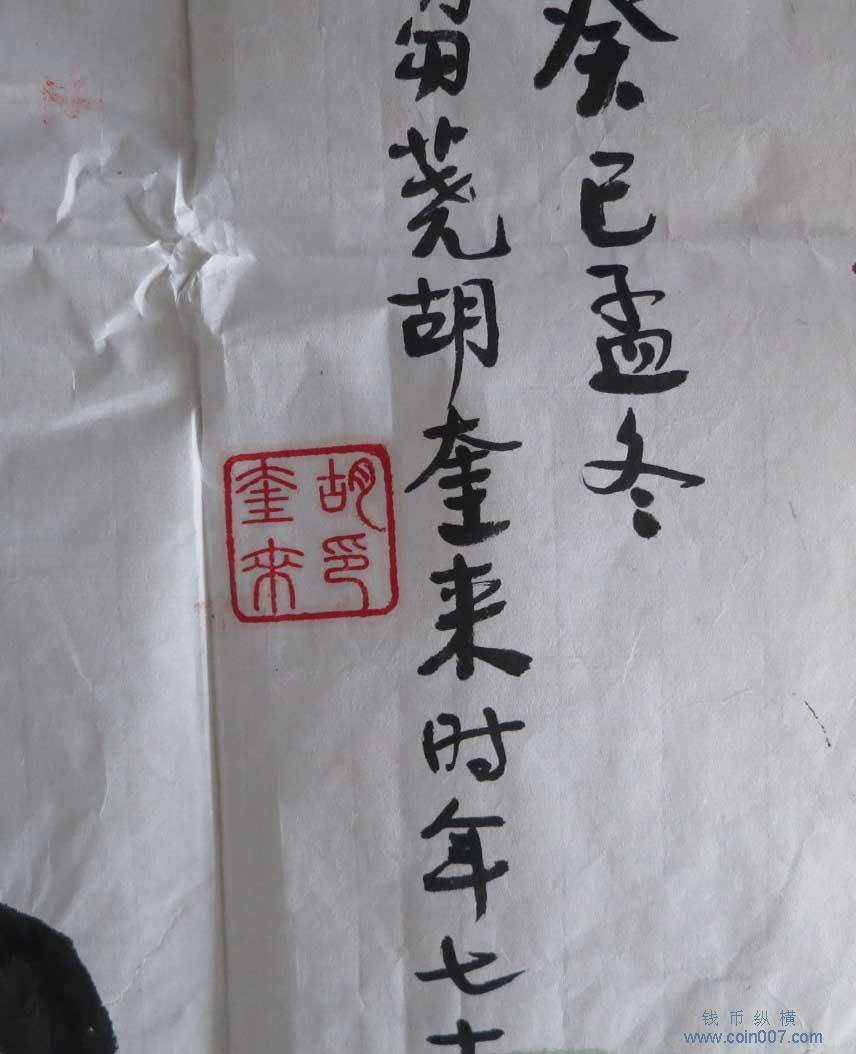 癸巳孟冬
荛胡奎来时年七十
胡印
奎来
钱币纵横
www.coin007.com